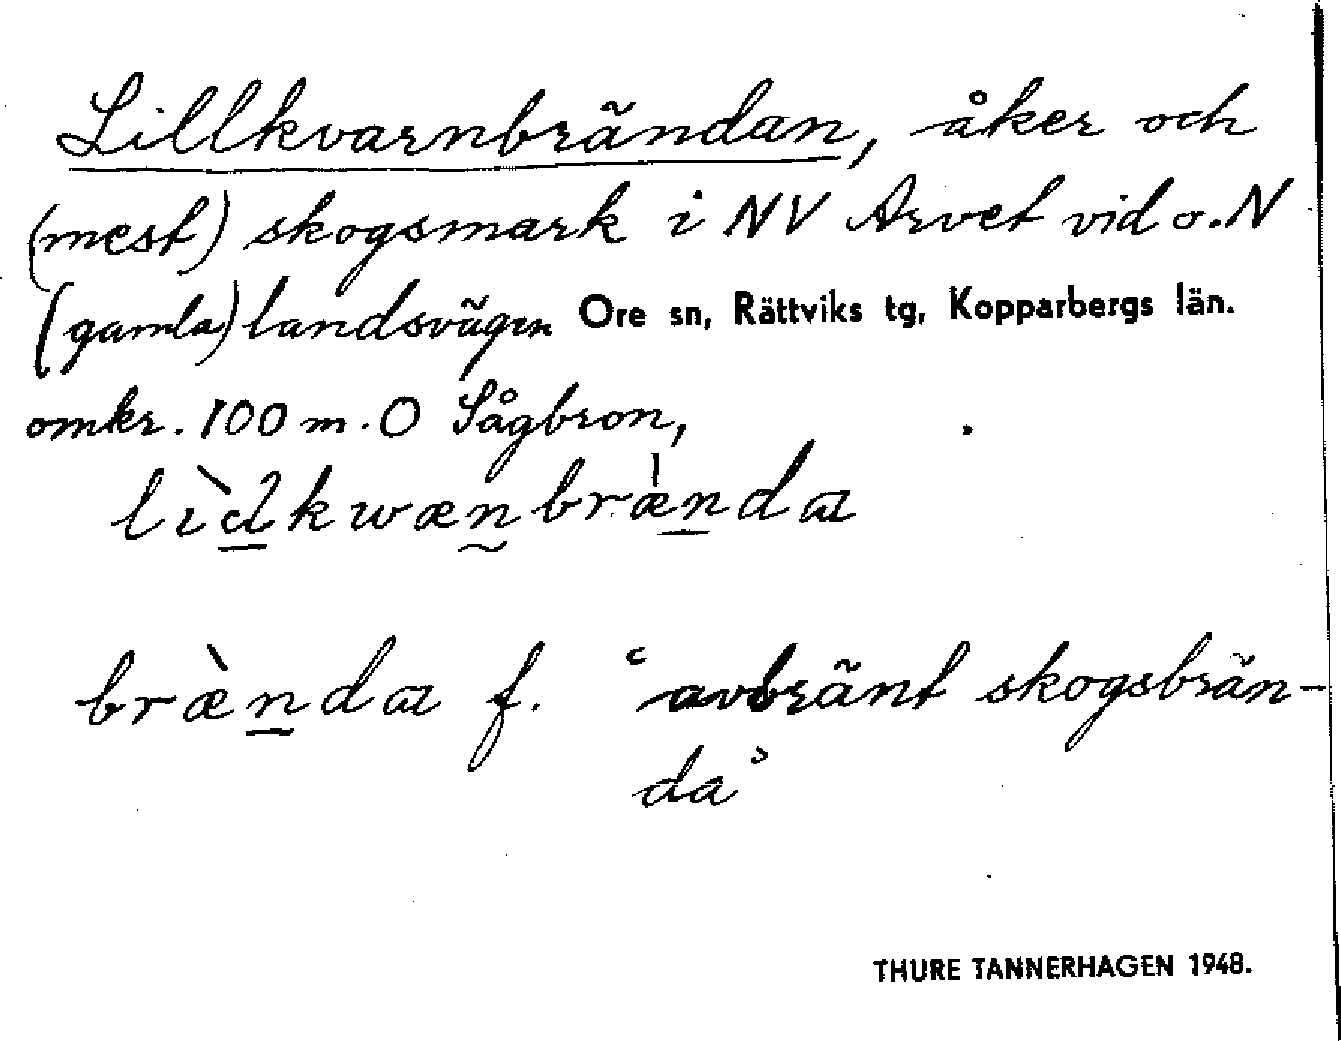 Lillkvarnbrändan, åker och
(mest) skogsmark i NV Arvet vid o. N
(gamla) landsvägen Ore sn, Rättviks tg, Kopparbergs län.
omkr. 100 m. O Sågbron,
lìdkwænbrænda
brænda f. ‘avbränt skogsbrän-
da’
THURE TANNERHAGEN 1948.